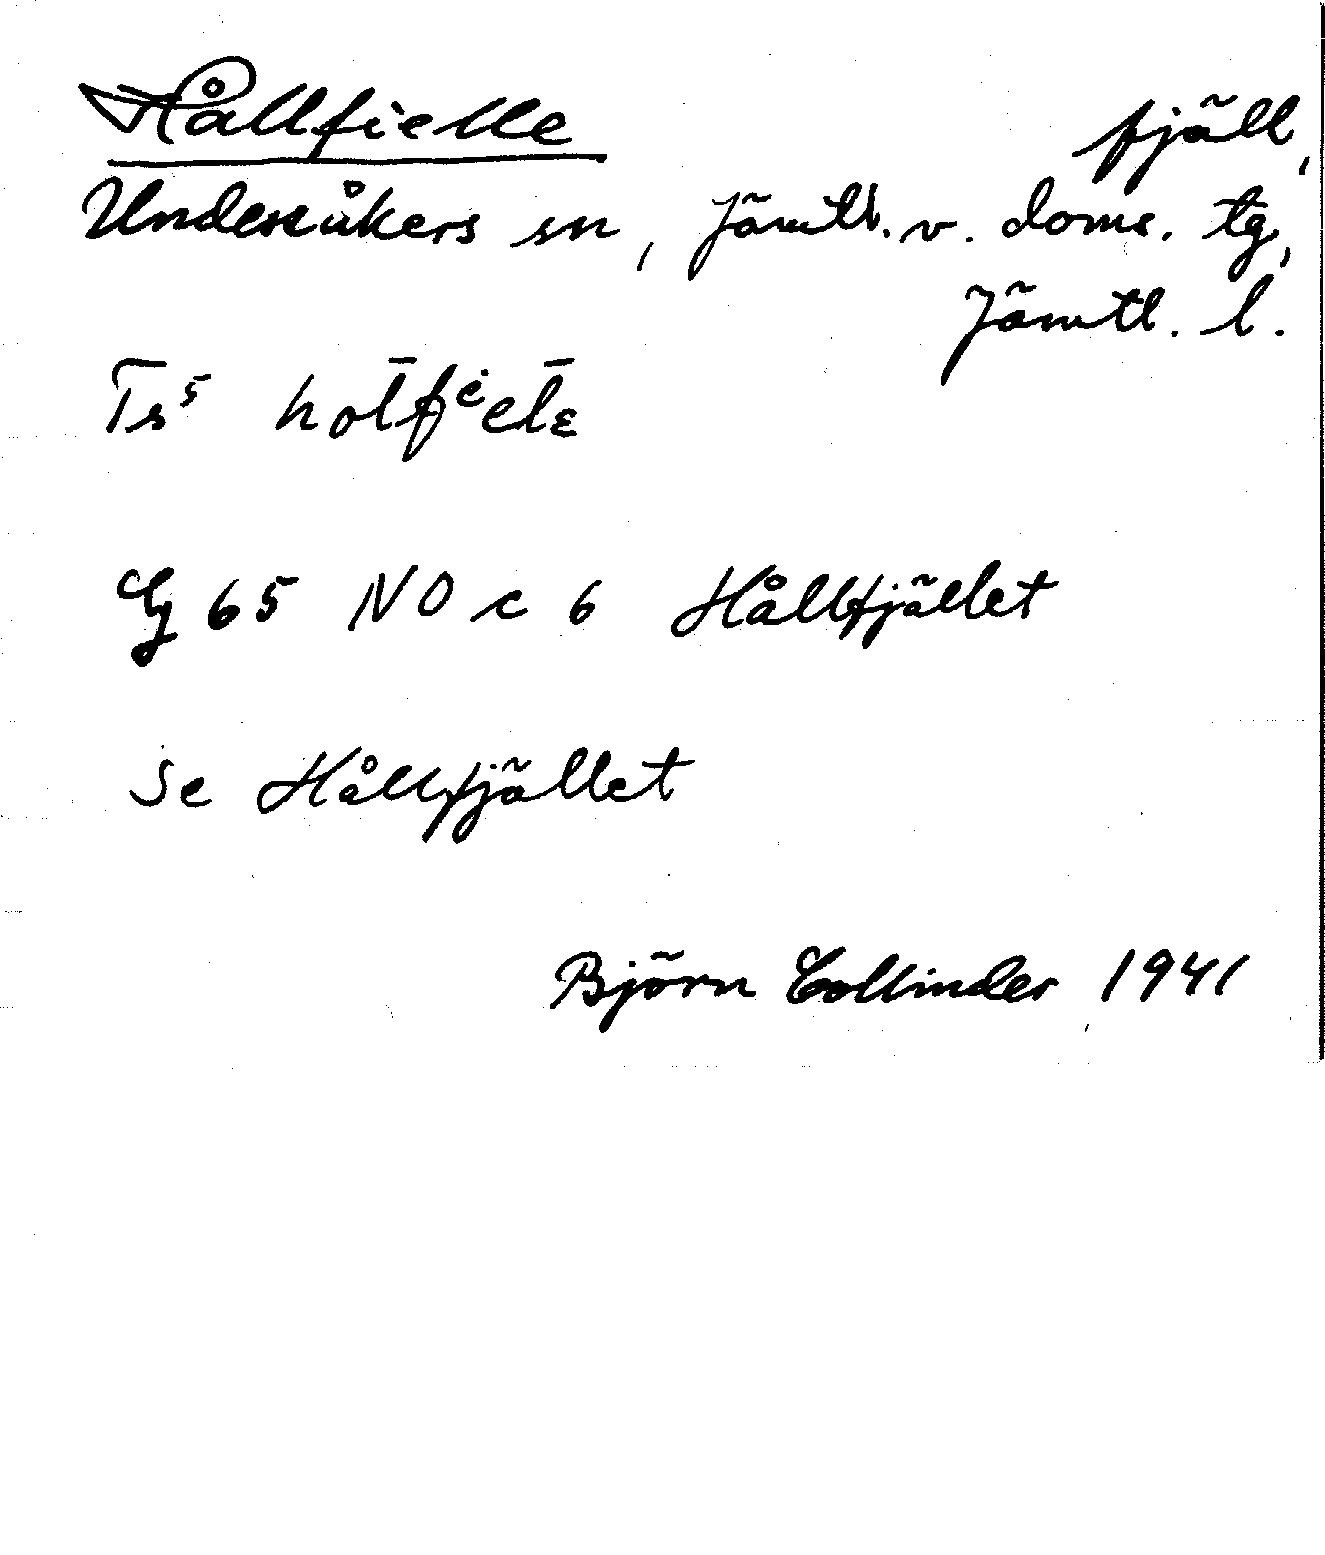 Hållfielle fjäll,
Undersåkers sn, Jämtl. v. doms. tg,
Jämtl. l.
Ts⁵ hol̄fⁱel̄ɛ
65 NO c 6 Hållfjället
Se Hållfjället
Björn Collinder 1941